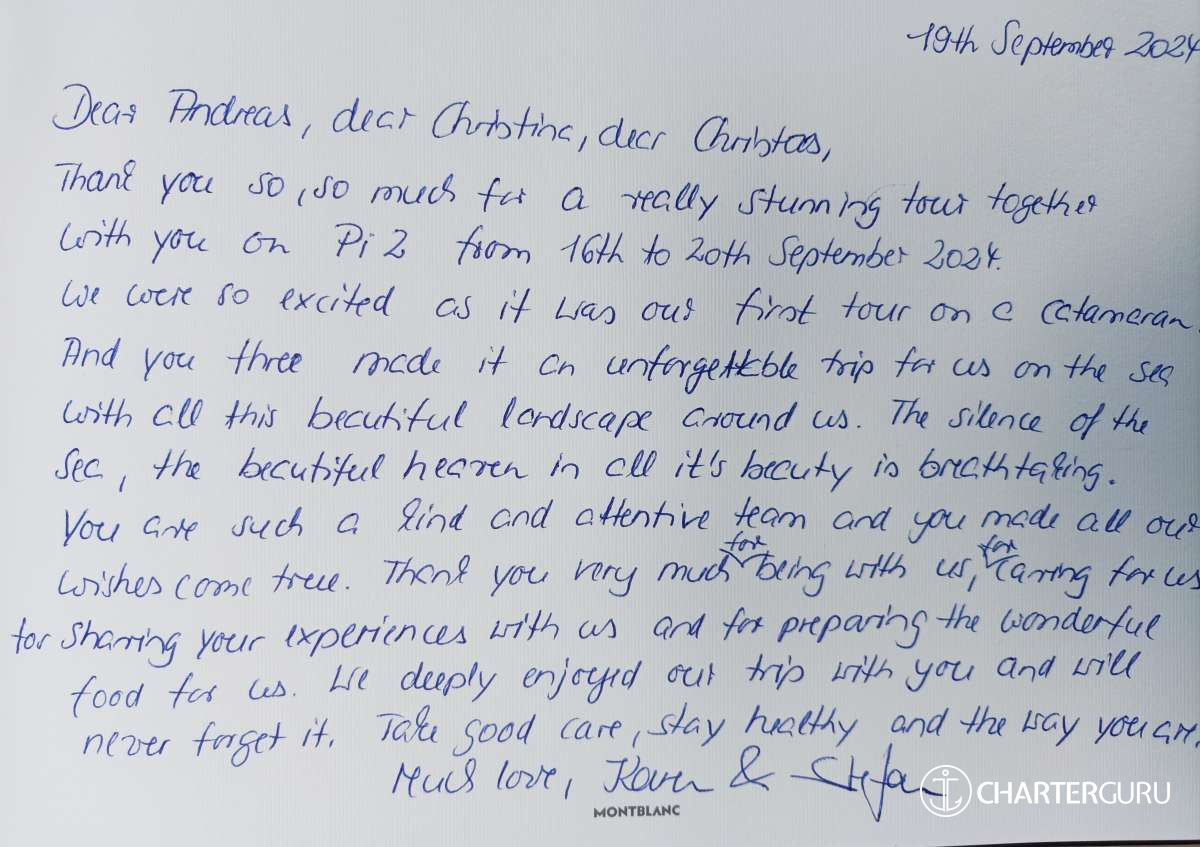 19th September 2024
Dear Andreas, dear Christina, dear Christos,
Thank you so, so much for a really stunning tour together
with you on Pi 2 from 16th to 20th September 2024.
We were so excited as it was our first tour on a catamaran.
And you three made it an unforgettable trip for us on the sea
with all this beautiful landscape around us. The silence of the
sea, the beautiful heaven in all it's beauty is breathtaking.
You are such a kind and attentive team and you made all our
wishes come true. Thank you very much for being with us, for carring for us
for sharring your experiences with us and for preparing the wonderful
food for us. We deeply enjoyed our trip with you and will
never forget it. Take good care, stay healthy and the way you are.
Much love, Karen & Stefan
MONTBLANC
CHARTERGURU